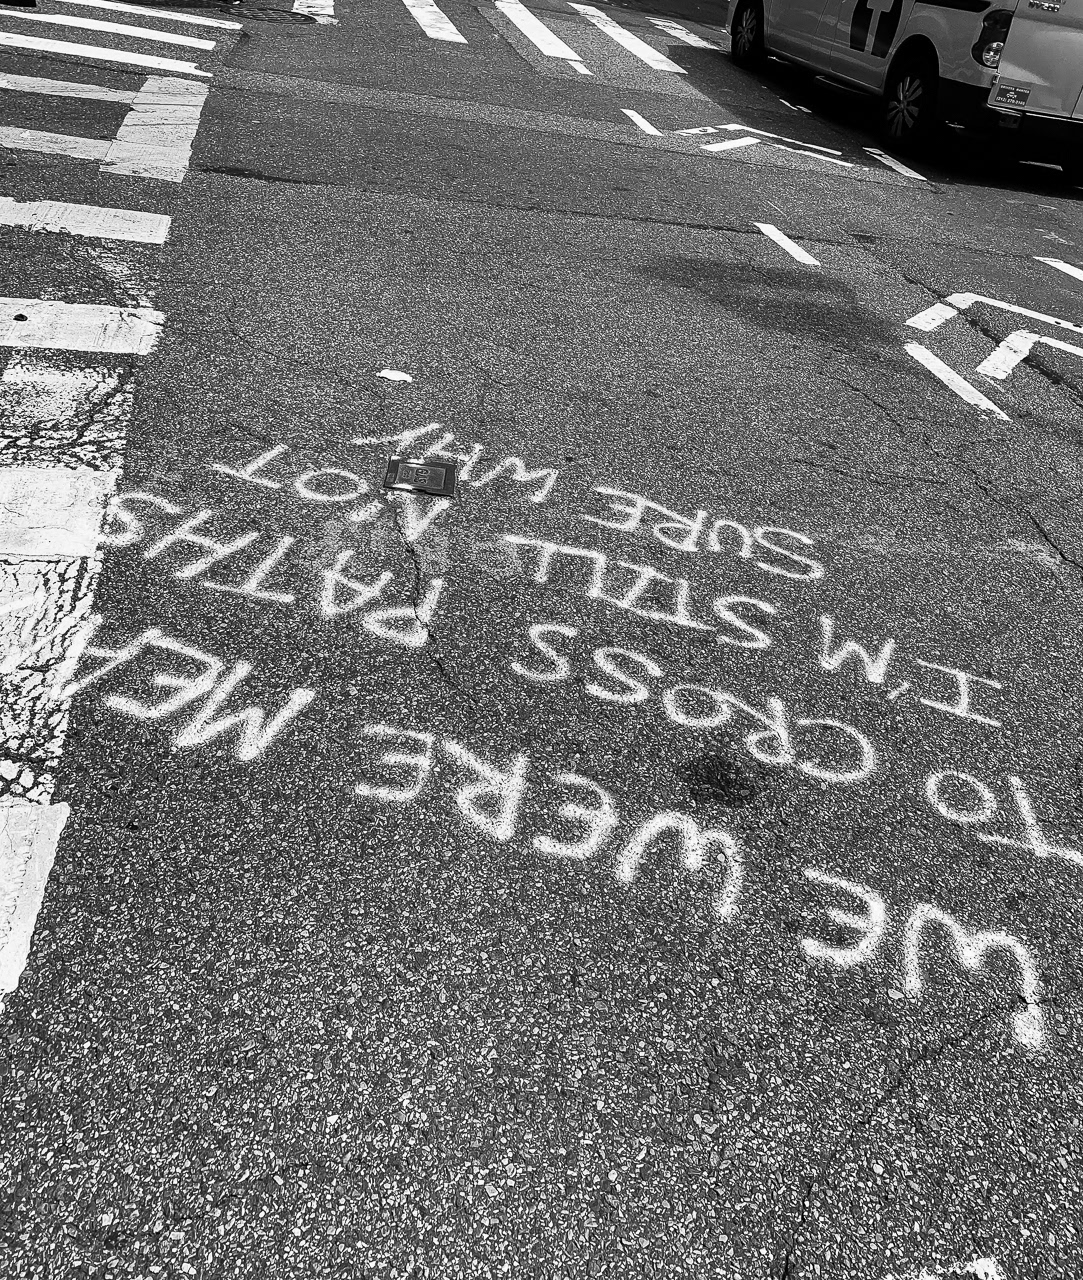 WE WERE MEA
TO CROSS PATHS
I'M STILL NOT
SURE WHY
T